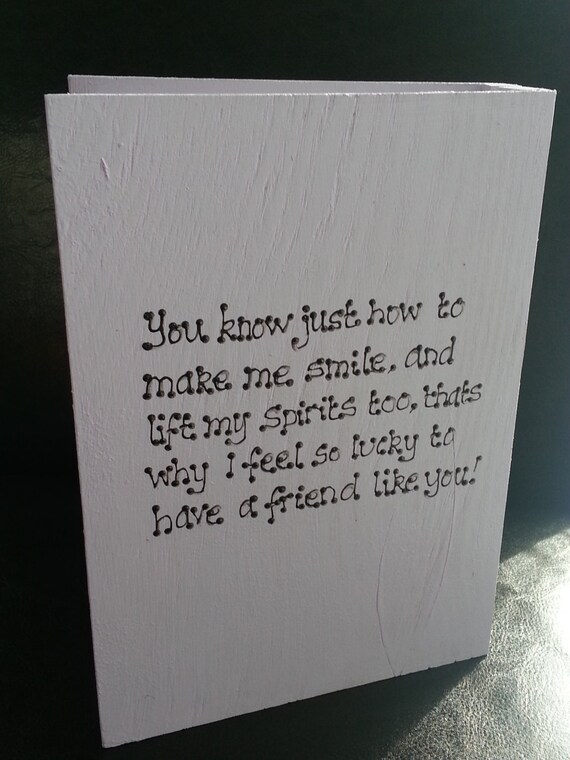 You know just how to
make me smile, and
lift my spirits too, thats
why I feel so lucky to
have a friend like you!